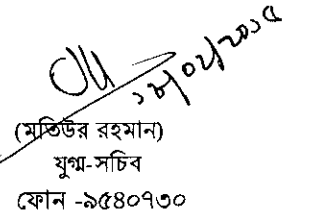 ১৮/০২/২০১৫
(মতিউর রহমান)
যুগ্ম-সচিব
ফোন -৯৫৪০৭৩০